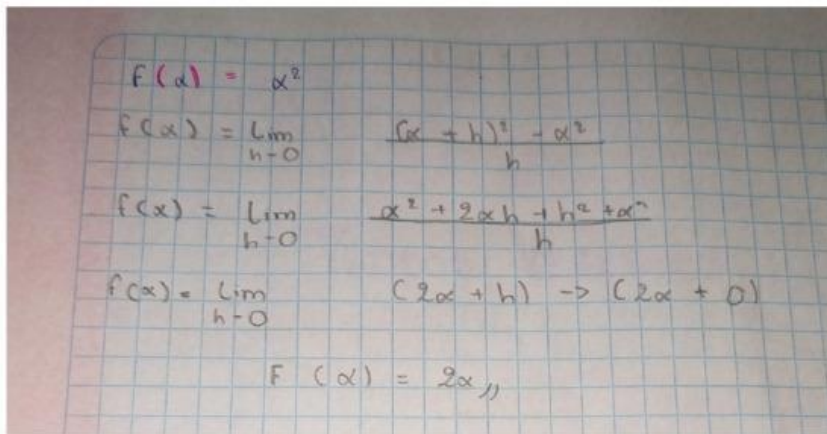 F(α) = α²
f(α) = Lim h-0 (α + h)² - α² / h
f(α) = Lim h-0 α² + 2αh + h² + α² / h
f(α) = Lim h-0 (2α + h) -> (2α + 0)
F (α) = 2α,,